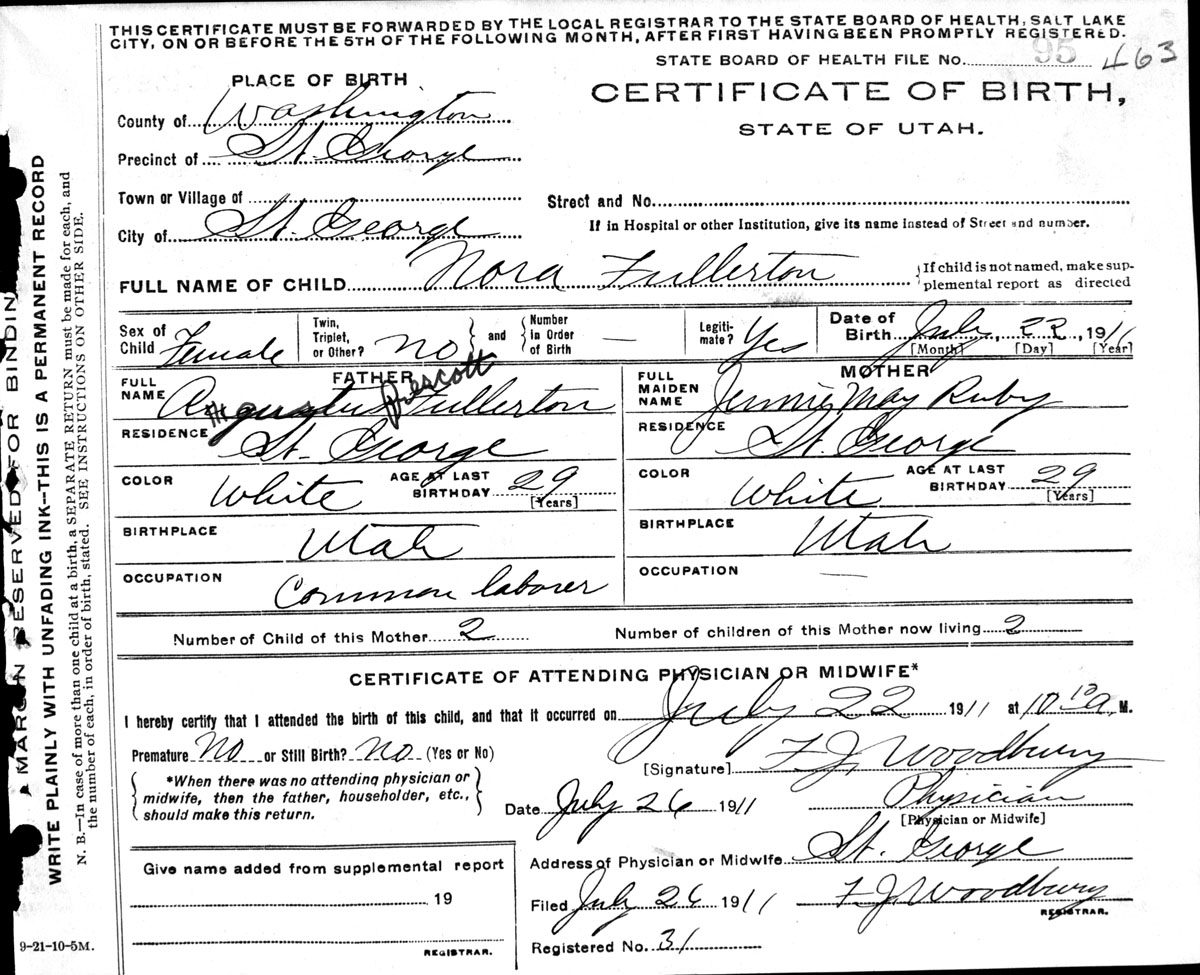 THIS CERTIFICATE MUST BE FORWARDED BY THE LOCAL REGISTRAR TO THE STATE BOARD OF HEALTH, SALT LAKE
CITY, ON OR BEFORE THE 5TH OF THE FOLLOWING MONTH, AFTER FIRST HAVING BEEN PROMPTLY REGISTERED.
STATE BOARD OF HEALTH FILE No. 95 463
PLACE OF BIRTH
CERTIFICATE OF BIRTH,
STATE OF UTAH.
County of Washington
Precinct of St. George
Town or Village of
Street and No.
City of St. George
If in Hospital or other Institution, give its name instead of Street and number.
FULL NAME OF CHILD Nora Fullerton
If child is not named, make sup-
plemental report as directed
Sex of Child Female
Twin, Triplet, or Other? No
and
Number in Order of Birth —
Legiti-mate? Yes
Date of Birth July 22, 1911
[Month] [Day] [Year]
FATHER
FULL NAME Prescott Fullerton
RESIDENCE St. George
COLOR White
AGE AT LAST BIRTHDAY 29
[Years]
BIRTHPLACE Utah
OCCUPATION Common laborer
MOTHER
FULL MAIDEN NAME Jennie May Ruby
RESIDENCE St. George
COLOR White
AGE AT LAST BIRTHDAY 29
[Years]
BIRTHPLACE Utah
OCCUPATION —
Number of Child of this Mother 2
Number of children of this Mother now living 2
CERTIFICATE OF ATTENDING PHYSICIAN OR MIDWIFE*
I hereby certify that I attended the birth of this child, and that it occurred on July 22 1911 at 10 10 a M.
Premature No or Still Birth? No (Yes or No)
[Signature] F. J. Woodbury
*When there was no attending physician or
midwife, then the father, householder, etc.,
should make this return.
Date July 26 1911
Physician
[Physician or Midwife]
Address of Physician or Midwife St. George
Give name added from supplemental report
19
REGISTRAR.
Filed July 26 1911 F. J. Woodbury
REGISTRAR.
Registered No. 31
9-21-10-5M.
MARGIN RESERVED FOR BINDIN
WRITE PLAINLY WITH UNFADING INK--THIS IS A PERMANENT RECORD
N. B.—In case of more than one child at a birth, a SEPARATE RETURN must be made for each, and
the number of each, in order of birth, stated. SEE INSTRUCTIONS ON OTHER SIDE.